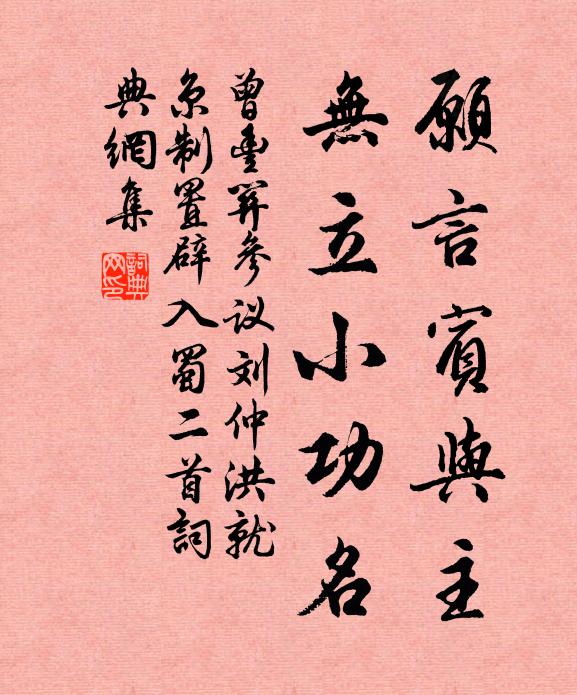 願言賓與主
無立小功名
曾豊筭參议刘仲洪就
京制置辟入蜀二首詞
典網集
詞典网印